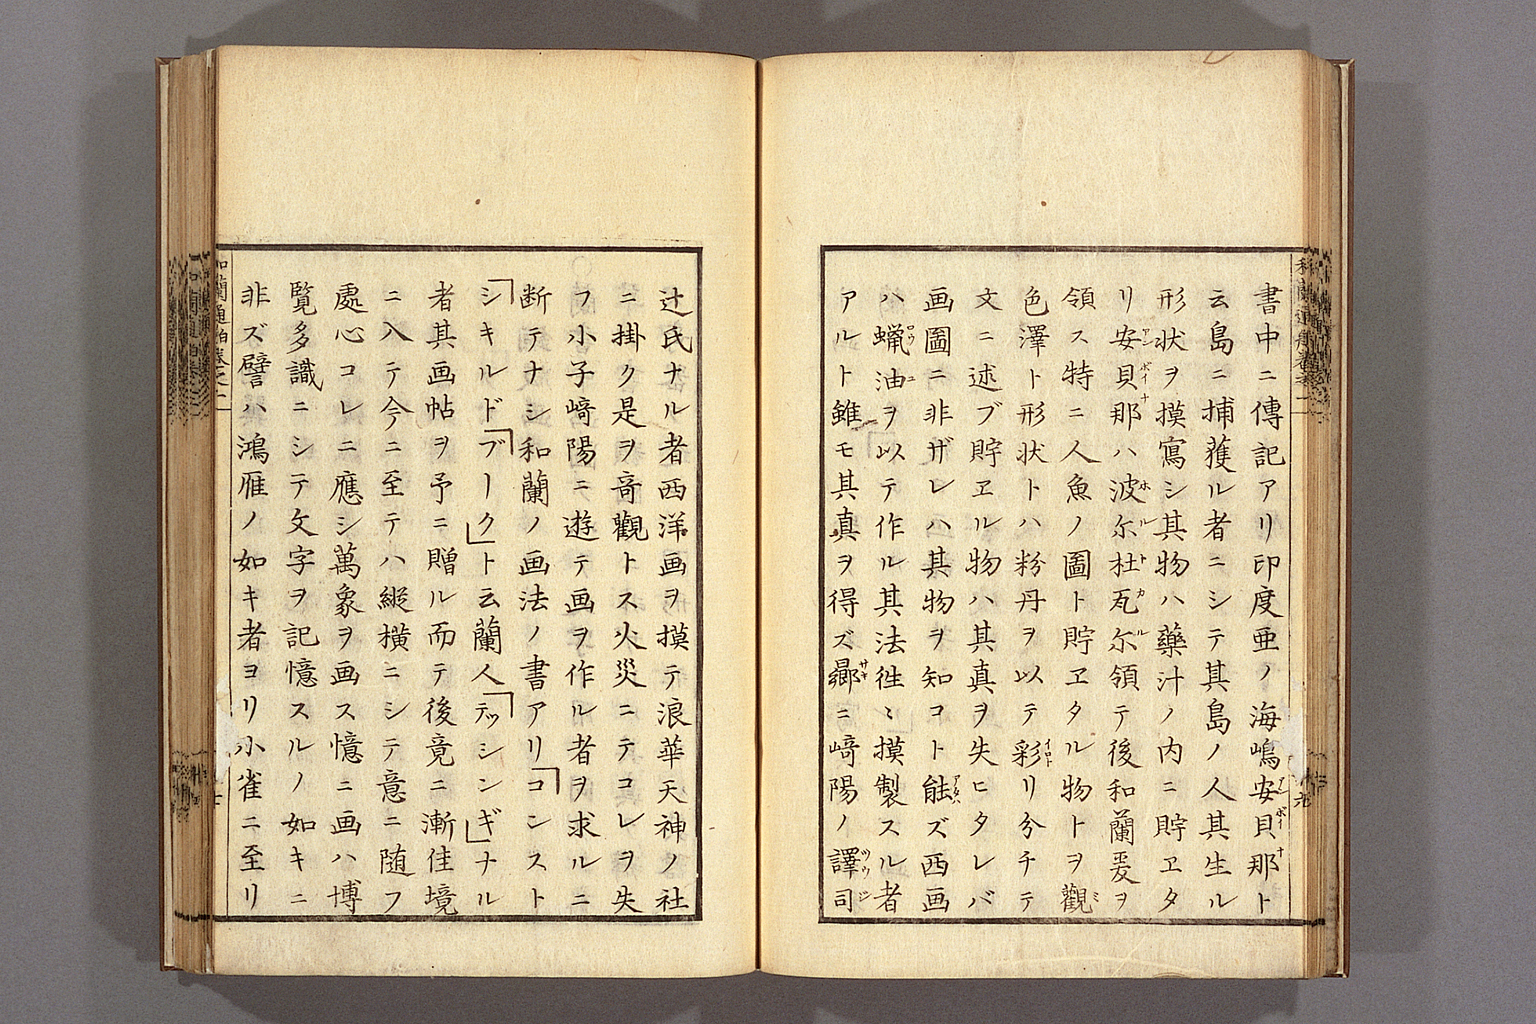 書中ニ傳記アリ印度亜ノ海嶋安貝那ト
云島ニ捕獲ル者ニシテ其島ノ人其生ル
形状ヲ摸寫シ其物ハ藥汁ノ内ニ貯ヱタ
リ安貝那ハ波尓杜瓦尓領テ後和蘭爰ヲ
領ス特ニ人魚ノ圖ト貯ヱタル物トヲ觀
色澤ト形状トハ粉丹ヲ以テ彩リ分チテ
文ニ述ブ貯ヱル物ハ其真ヲ失ヒタレバ
画圖ニ非ザレハ其物ヲ知コト能ズ西画
ハ蝋油ヲ以テ作ル其法徃〻摸製スル者
アルト雖モ其真ヲ得ズ曏ニ﨑陽ノ譯司
辻氏ナル者西洋画ヲ摸テ浪華天神ノ社
ニ掛ク是ヲ竒觀トス火災ニテコレヲ失
フ小子﨑陽ニ遊テ画ヲ作ル者ヲ求ルニ
断テナシ和蘭ノ画法ノ書アリ「コンスト
シキルドブーク」ト云蘭人「テッシンギ」ナル
者其画帖ヲ予ニ贈ル而テ後竟ニ漸佳境
ニ入テ今ニ至テハ縦横ニシテ意ニ随フ
處心コレニ應シ萬象ヲ画ス憶ニ画ハ博
覧多識ニシテ文字ヲ記憶スルノ如キニ
非ズ譬ハ鴻雁ノ如キ者ヨリ小雀ニ至リ